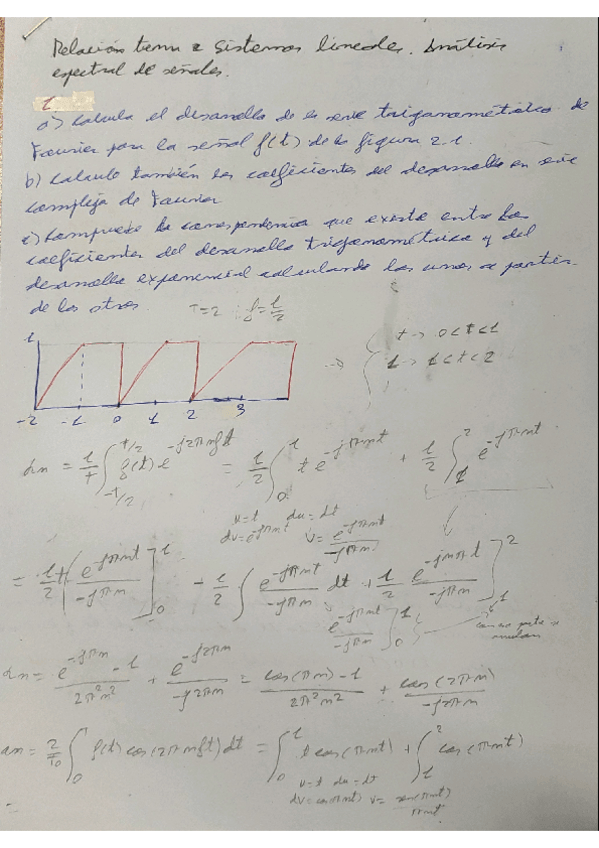 Relación tema 2 Sistemas lineales. Análisis
espectral de señales.
1
a) Calcula el desarrollo de la serie trigonométrica de
Fourier para la señal f(t) de la figura 2.1.
b) Calcule también los coeficientes del desarrollo en serie
compleja de Fourier
c) Compruebe la correspondencia que existe entre los
coeficientes del desarrollo trigonométrico y del
desarrollo exponencial calculando los unos a partir
de los otros
T=2 ; f=1/2
1
t → 0<t<1
→ 1 → 1<t<2
-2 -1 0 1 2 3
αn = 1/T ∫_{-T/2}^{T/2} f(t) e^{-j2πnft} = 1/2 ∫_0^1 t e^{-jπnt} + 1/2 ∫_1^2 e^{-jπnt}
u=t du=dt
dv=e^{-jπnt} v= e^{-jπnt}/-jπn
= 1/2 t [e^{-jπnt}/-jπn]_0^1 - 1/2 ∫ e^{-jπnt}/-jπn dt + 1/2 e^{-jnπt}/-jπn ]_1^2
e^{-jπnt}/-jπn ]_0^1
αn = e^{-jπn} - 1/2π²n² + e^{-j2πn}/-j2πn = cos(πn)-1/2π²n² + cos(2πn)/-j2πn
an = 2/T0 ∫_0 f(t) cos(2πnft)dt = ∫_0^1 t cos(πnt) + ∫_1^2 cos(πnt)
u=t du=dt
dv=cos(πnt) v= sen(πnt)/πnt